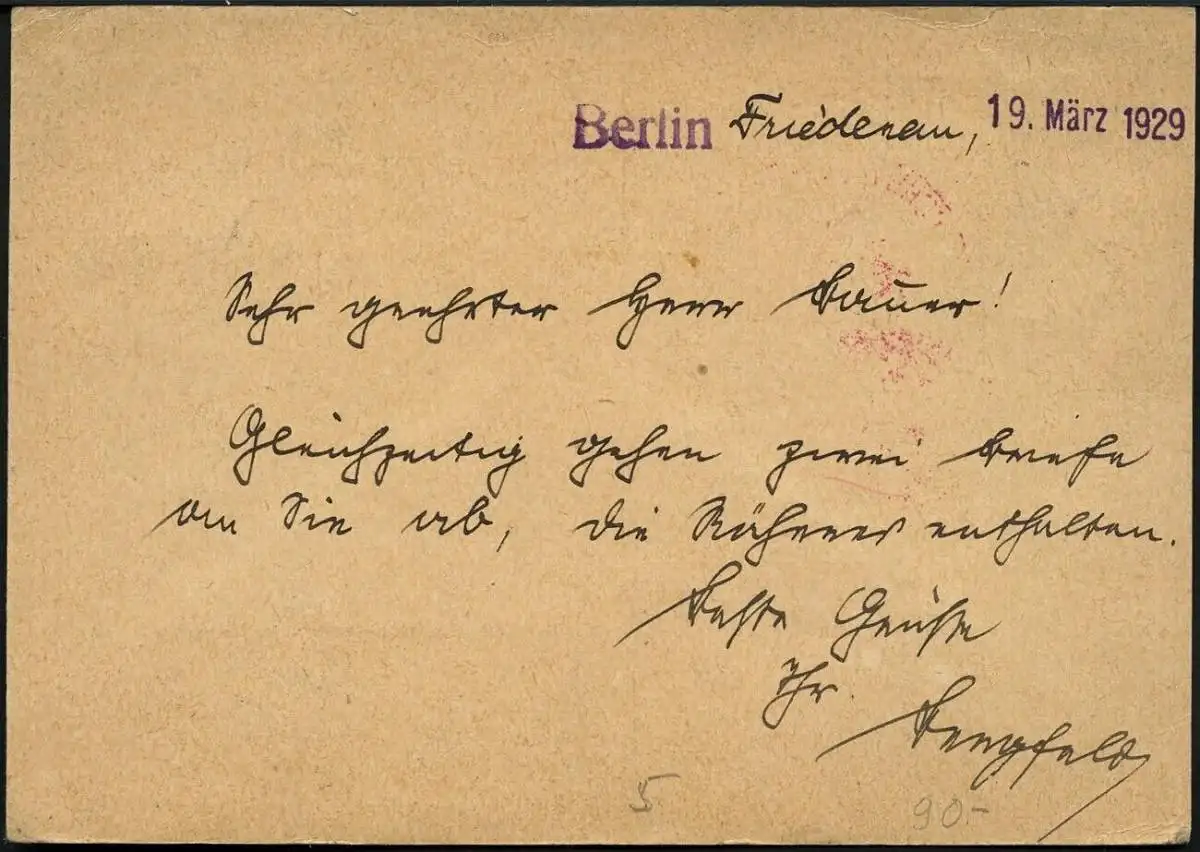 Berlin Friedenau, 19. März 1929
Sehr geehrter Herr Bauer!
Gleichzeitig gehen zwei Briefe
an Sie ab, die Näheres enthalten.
Beste Grüße
Ihr
Bergfeld
5
90.-